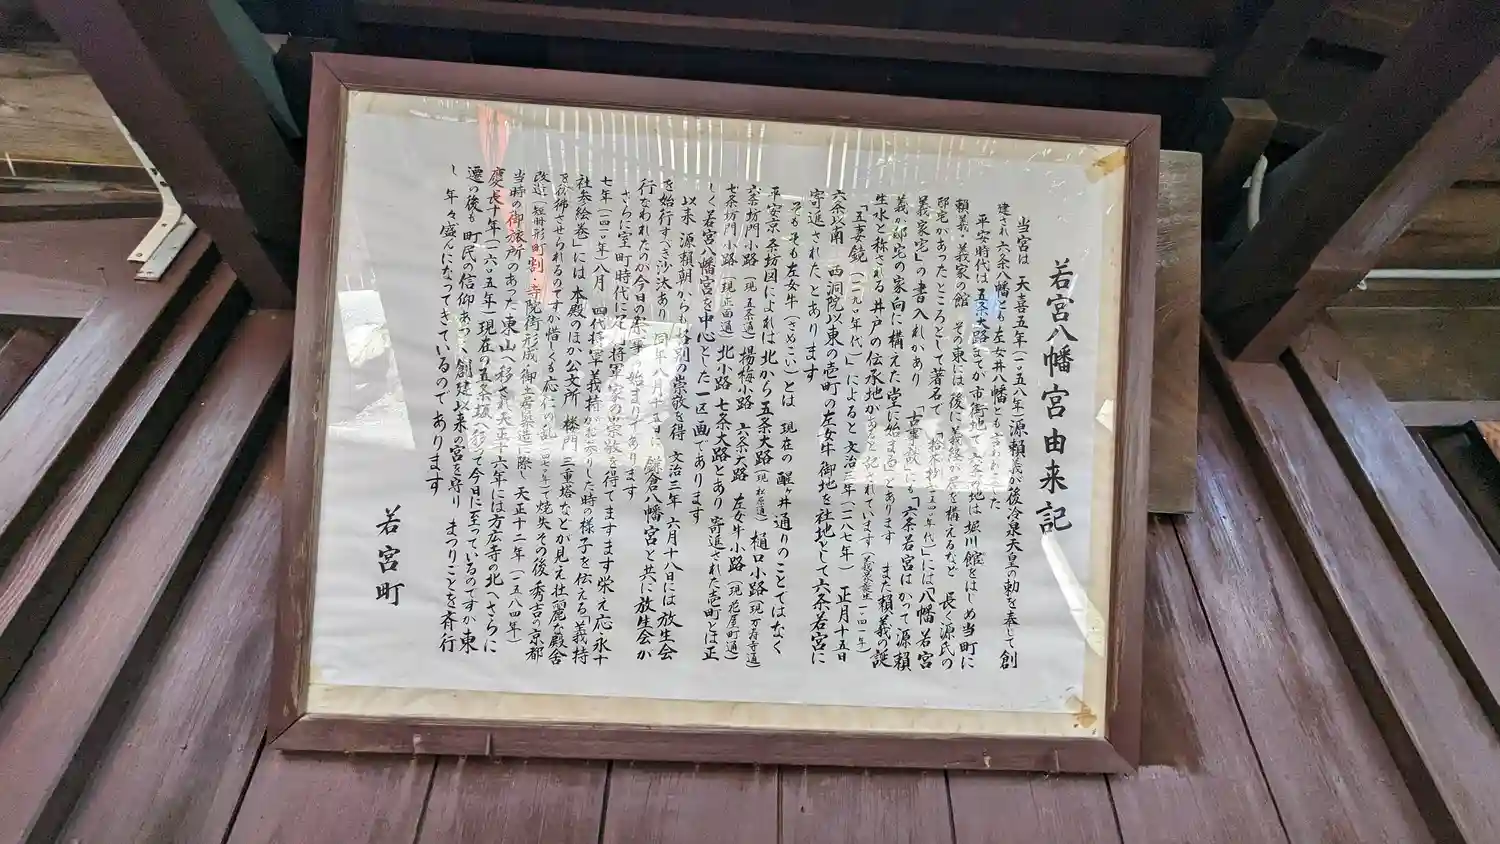 若宮八幡宮由来記
当宮は 天喜五年(一〇五八年)源頼義が後冷泉天皇の勅を奉じて創
建され六条八幡とも左女井八幡とも言われました
平安時代は五条大路までが市街地で 六条の地は 堀川館をはじめ当町に
頼義、義家の館 その東には後に義経が居を構えるなど 長く源氏の
邸宅があったところとして著名で
義家宅」の書入れがあり 「古事談」にも「六条若宮はかつて源頼
義が邸宅の家向に構えた堂に始まる」とあります また頼義の誕
生水と称される井戸の伝承地が
「五妻鏡(一一九〇年代)」によると 文治三年(一一八七年) 正月十五日
六条以南 西洞院以東の壱町の左女牛御地を社地として六条若宮に
寄進された、とあります
そもそも左女牛(さめごい)とは 現在の 醒ヶ井通りのことではなく
平安京 条坊図によれば 北から五条大路(現 松原通) 樋口小路(現 万寿寺通)
六条坊門小路(現 五条通) 楊梅小路 六条大路 左女牛小路(現 花屋町通)
七条坊門小路(現 正面通) 北小路 七条大路とあり 寄進された壱町とは正
しく若宮八幡宮を中心とした一区画であります
以来 源頼朝からも特別の崇敬を得 文治三年 六月十八日には放生会
を始行すべき沙汰あり 同年八月十五日に 鎌倉八幡宮と共に放生会が
行なわれたのが今日の祭事の始まりであります
さらに室町時代に足利将軍家の崇敬を得てますます栄え応永十
七年(一四一〇年)八月 四代将軍義持が参りした時の様子を伝える「義持
社参絵巻」には 本殿のほか公文所 楼門 三重塔などが見え壮麗な殿舎
を彷彿させられるのですが惜しくも応仁の乱 で焼失その後 秀吉の京都
改造(短冊形町割・寺院街形成・御土居築造)に際し 天正十二年(一五八四年)
当時の御旅所のあった東山へ移され天正十六年には方広寺の北へさらに
慶長十年(一六〇五年)現在の五条坂へ移って今日に至っているのですが東
遷の後も町民の信仰あつく創建以来の宮を守り まつりごとを斉行
し 年々盛んになってきているのであります
若宮町